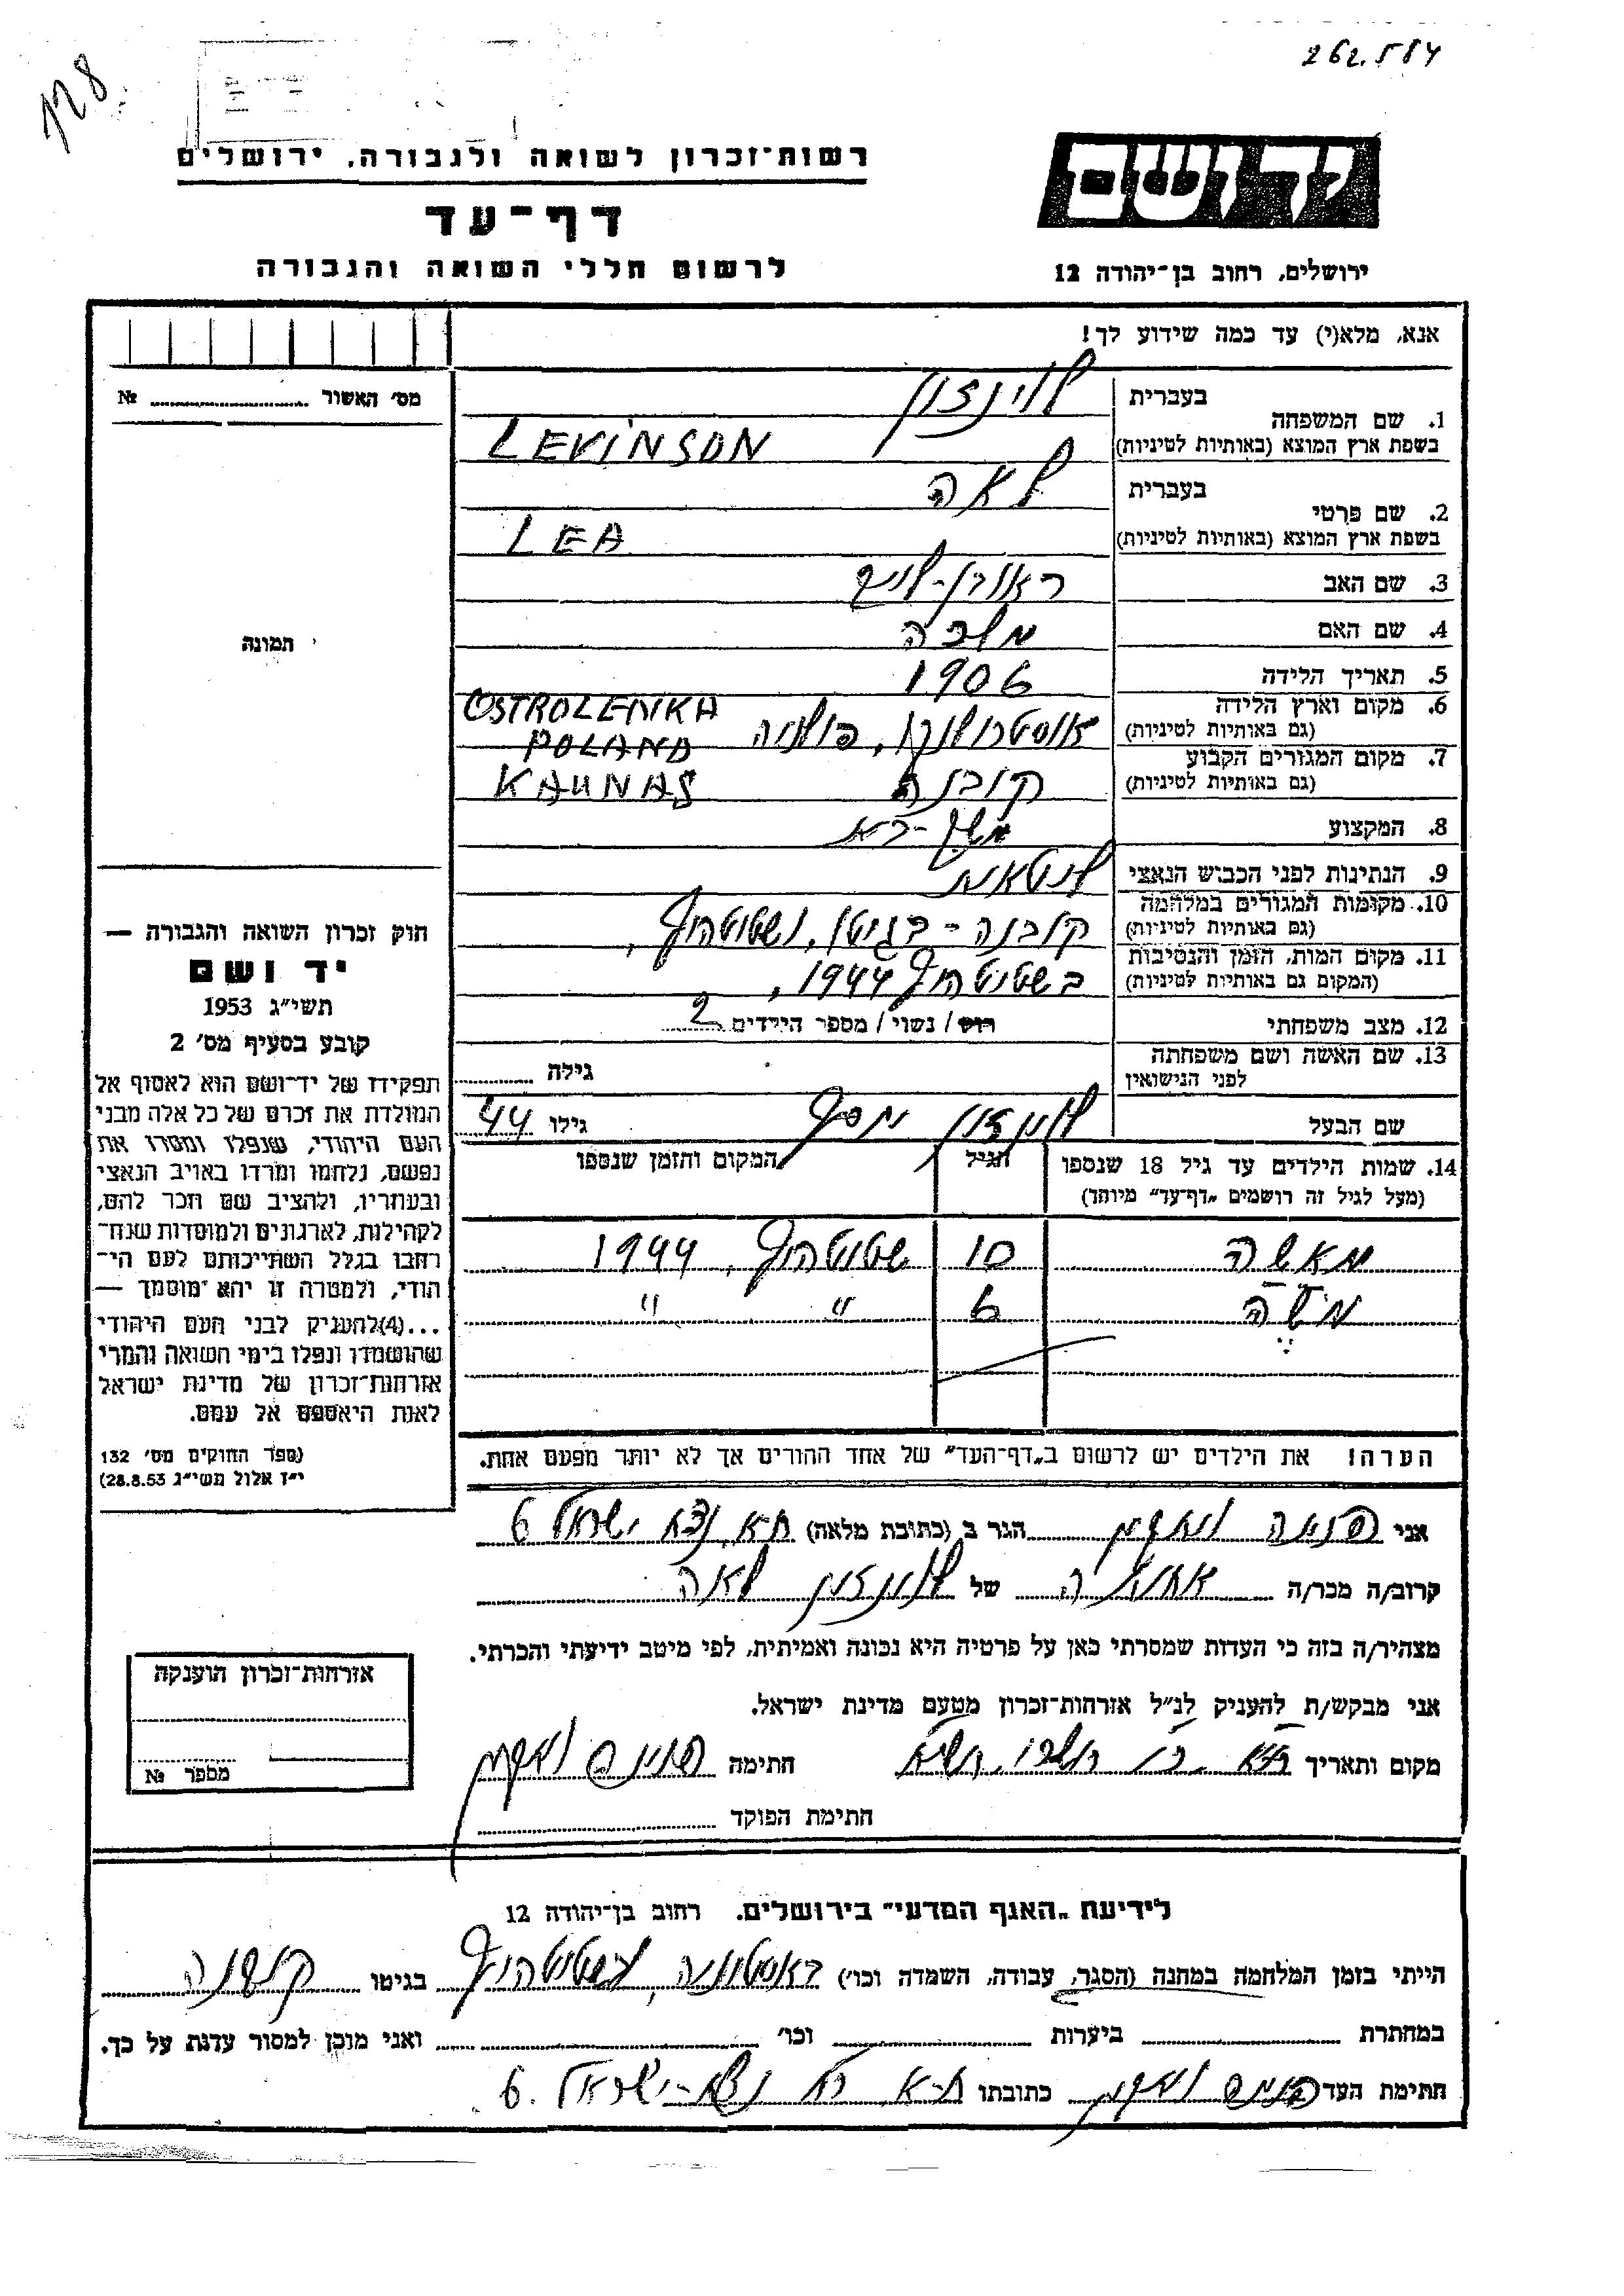 262.584
128
יד ושם
רשות־זכרון לשואה ולגבורה, ירושלים
דף־עד
לרשום חללי השואה והגבורה
ירושלים, רחוב בן־יהודה 12
אנא, מלא(י) עד כמה שידוע לך!
מס' האשור № 
1. שם המשפחה בעברית לוינזון
בשפת ארץ המוצא (באותיות לטיניות) LEVINSON
2. שם פרטי בעברית לאה
בשפת ארץ המוצא (באותיות לטיניות) LEA
3. שם האב ראובן-לייב
4. שם האם מלכה
5. תאריך הלידה 1906
6. מקום וארץ הלידה (גם באותיות לטיניות) אוסטרולנקה, פולניה OSTROLENKA POLAND
7. מקום המגורים הקבוע (גם באותיות לטיניות) קובנה KAUNAS
8. המקצוע משק-בית
9. הנתינות לפני הכבוש הנאצי ליטאית
10. מקומות המגורים במלחמה (גם באותיות לטיניות) קובנה - בגיטו, ושטוטהוף,
11. מקום המות, הזמן והנסיבות (המקום גם באותיות לטיניות) בשטוטהוף 1944,
12. מצב משפחתי רוק / נשוי / מספר הילדים 2
13. שם האשה ושם משפחתה לפני הנישואין גילה
שם הבעל לוינזון יוסף גילו 44
14. שמות הילדים עד גיל 18 שנספו הגיל המקום והזמן שנספו
(מעל לגיל זה רושמים „דף־עד" מיוחד)
מאשה 10 שטוטהוף, 1944
משה 6 " "
הערה! את הילדים יש לרשום ב„דף־העד" של אחד ההורים אך לא יותר מפעם אחת.
תמונה
חוק זכרון השואה והגבורה —
יד ושם
תשי"ג 1953
קובע בסעיף מס' 2
תפקידו של יד־ושם הוא לאסוף אל
המולדת את זכרם של כל אלה מבני
העם היהודי, שנפלו ומסרו את
נפשם, נלחמו ומרדו באויב הנאצי
ובעוזריו, ולהציב שם וזכר להם,
לקהילות, לארגונים ולמוסדות שנח־
רבו בגלל השתייכותם לעם הי־
הודי, ולמטרה זו יהא מוסמך —
...(4)להעניק לבני העם היהודי
שהושמדו ונפלו בימי השואה והמרי
אזרחות־זכרון של מדינת ישראל
לאות היאספם אל עמם.
(ספר החוקים מס' 132
י"ז אלול תשי"ג 28.8.53)
אני הגר ב (כתובת מלאה) ת-א, נצח ישראל 6
קרוב/ה מכר/ה אחות של לוינזון לאה
מצהיר/ה בזה כי העדות שמסרתי כאן על פרטיה היא נכונה ואמיתית, לפי מיטב ידיעתי והכרתי.
אני מבקש/ת להעניק לנ"ל אזרחות־זכרון מטעם מדינת ישראל.
מקום ותאריך חתימה
חתימת הפוקד
אזרחות־זכרון הוענקה
מספר №
לידיעת „האגף המדעי" בירושלים, רחוב בן־יהודה 12
הייתי בזמן המלחמה במחנה (הסגר, עבודה, השמדה וכו') באסטוניה, בשטוטהוף בגיטו קובנה
במחתרת ביערות וכו' ואני מוכן למסור עדות על כך.
חתימת העד כתובתו ת-א, רח' נצח-ישראל 6.